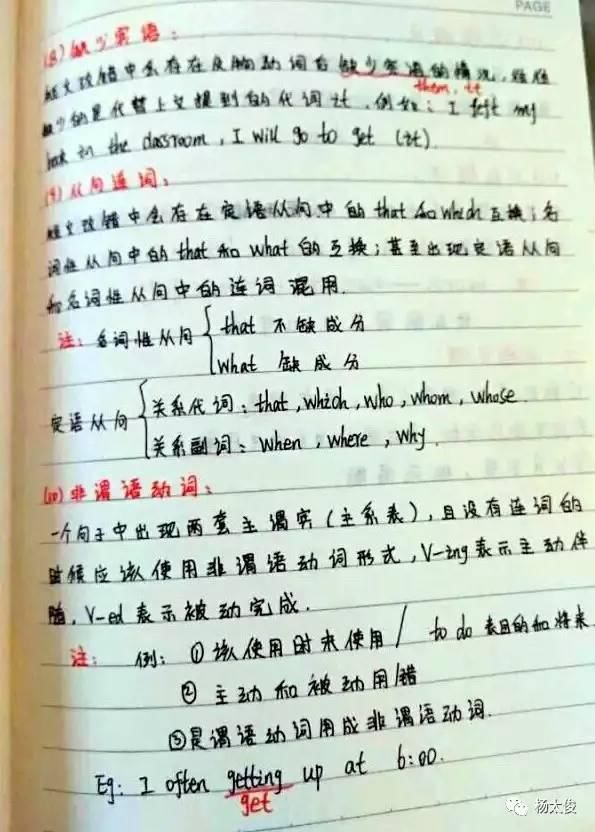 PAGE
(8) 缺少宾语:
短文改错中会存在及物动词后缺少宾语的情况,往往
them, it
缺少的是代替上文提到的代词it. 例如: I left my
book in the classroom, I will go to get (it).
(9) 从句连词:
短文改错中会存在定语从句中的that和which互换;名
词性从句中的that和what的互换;甚至出现定语从句
和名词性从句中的连词混用.
注: 名词性从句 { that 不缺成分
what 缺成分
定语从句 { 关系代词: that, which, who, whom, whose.
关系副词: when, where, why.
(10) 非谓语动词:
一个句子中出现两套主谓宾(主系表),且没有连词的
时候应该使用非谓语动词形式, V-ing表示主动伴
随, V-ed表示被动完成.
注: 例: ①该使用时未使用 / to do 表目的和将来
② 主动和被动用错
③是谓语动词用成非谓语动词.
Eg: I often getting up at 6:00.
get
杨太俊